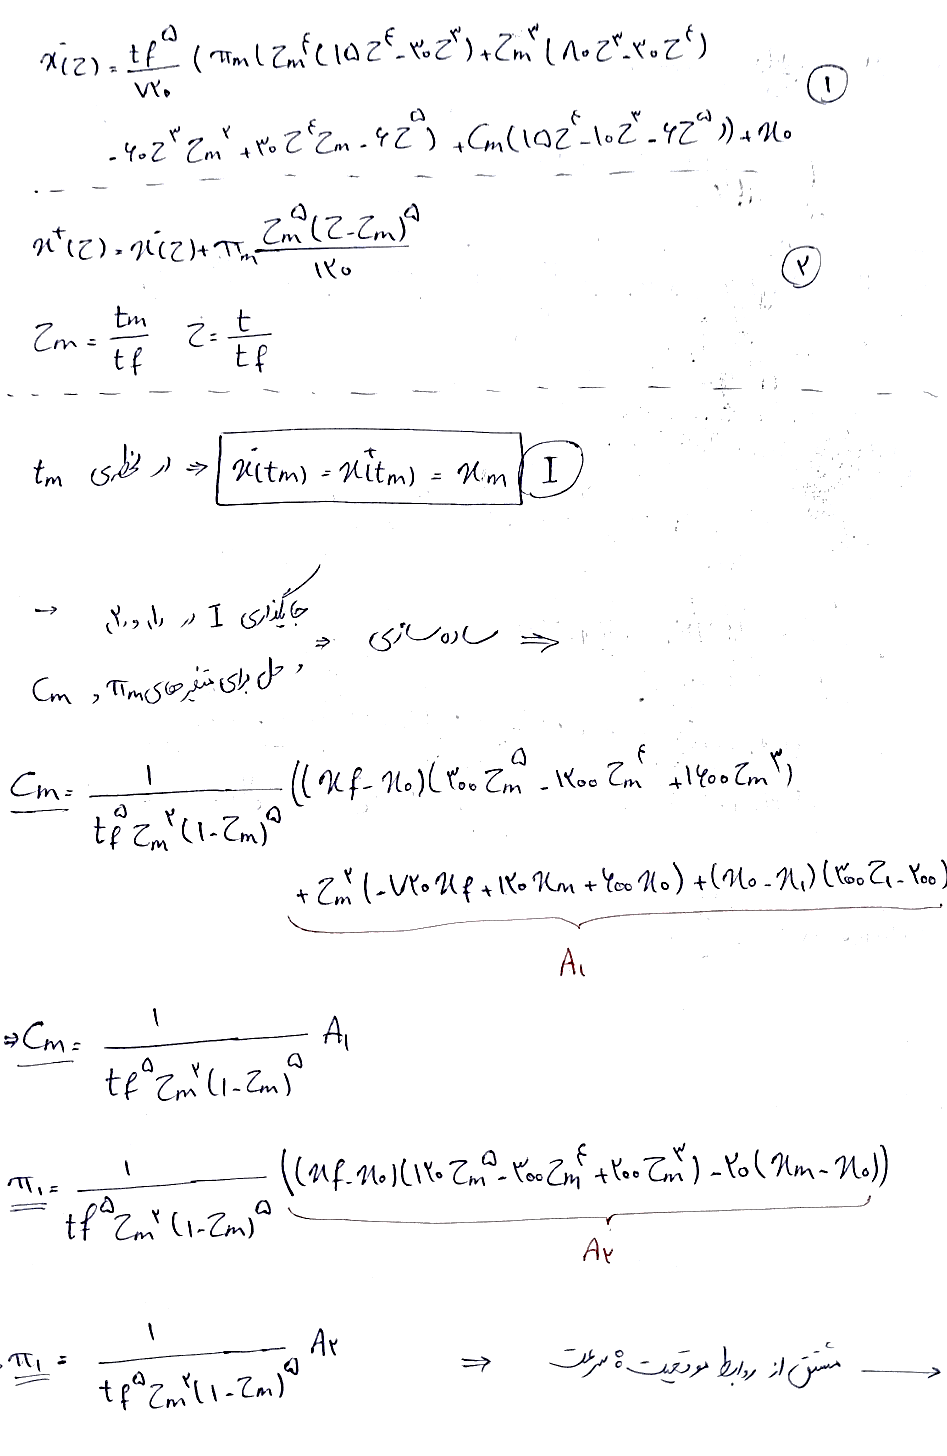 x⁻(τ) = tf^۵/۷۲۰ (πm(τm^۴(۱۵τ^۴-۳۰τ^۳)+τm^۳(۸۰τ^۳-۳۰τ^۴)
①
-۶۰τ^۳τm^۲+۳۰τ^۴τm-۶τ^۵)+Cm(۱۵τ^۴-۱۰τ^۳-۶τ^۵))+x₀
x⁺(τ) = x⁻(τ)+πm τm^۵(τ-τm)^۵/۱۲۰
②
τm = tm/tf τ = t/tf
در لحظه‌ی tm ⇒ x⁻(tm) = x⁺(tm) = xm Ⅰ
جایگذاری I در ۱ و ۲ →
⇒ ساده سازی ⇒
و حل برای متغیرهای πm و Cm
Cm = ۱/(tf^۵ τm^۲(۱-τm)^۵) ((xf-x₀)(۳۰۰τm^۵-۱۲۰۰τm^۴+۱۶۰۰τm^۳)
+τm^۲(-۷۲۰xf+۱۲۰xm+۶۰۰x₀)+(x₀-x₁)(۳۰۰τ₁-۲۰۰)
A₁
⇒ Cm = ۱/(tf^۵ τm^۲(۱-τm)^۵) A₁
π₁ = ۱/(tf^۵ τm^۲(۱-τm)^۵) ((xf-x₀)(۱۲۰τm^۵-۳۰۰τm^۴+۲۰۰τm^۳)-۲۰(xm-x₀))
A₂
π₁ = ۱/(tf^۵ τm^۲(۱-τm)^۵) A₂ ⇒ مشتق از روابط موقعیت: سرعت →